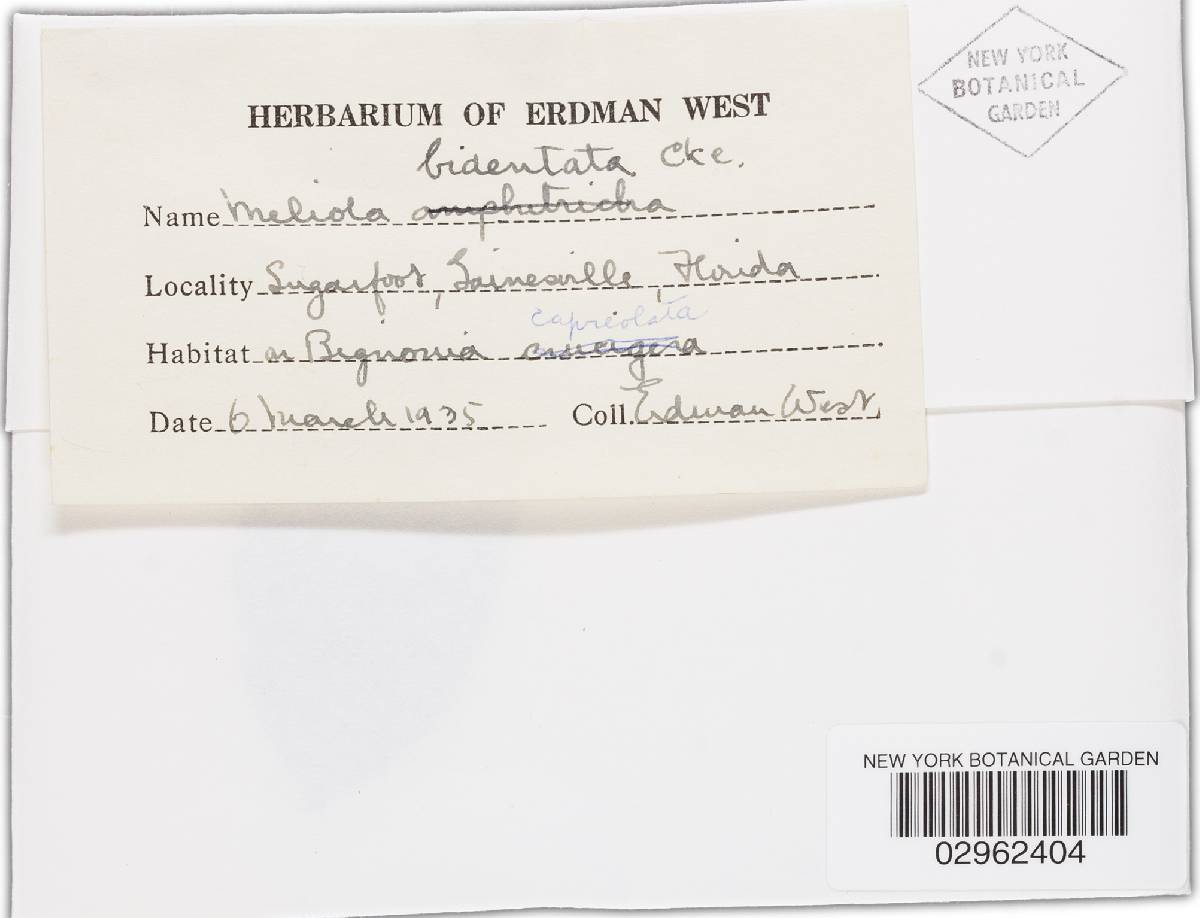 HERBARIUM OF ERDMAN WEST
bidentata Cke.
Name Meliola amphitricha
Locality Sugarfoot, Gainesville, Florida
capreolata
Habitat on Bignonia crucigera
Date 6 March 1935 Coll. Erdman West
NEW YORK
BOTANICAL
GARDEN
NEW YORK BOTANICAL GARDEN
02962404